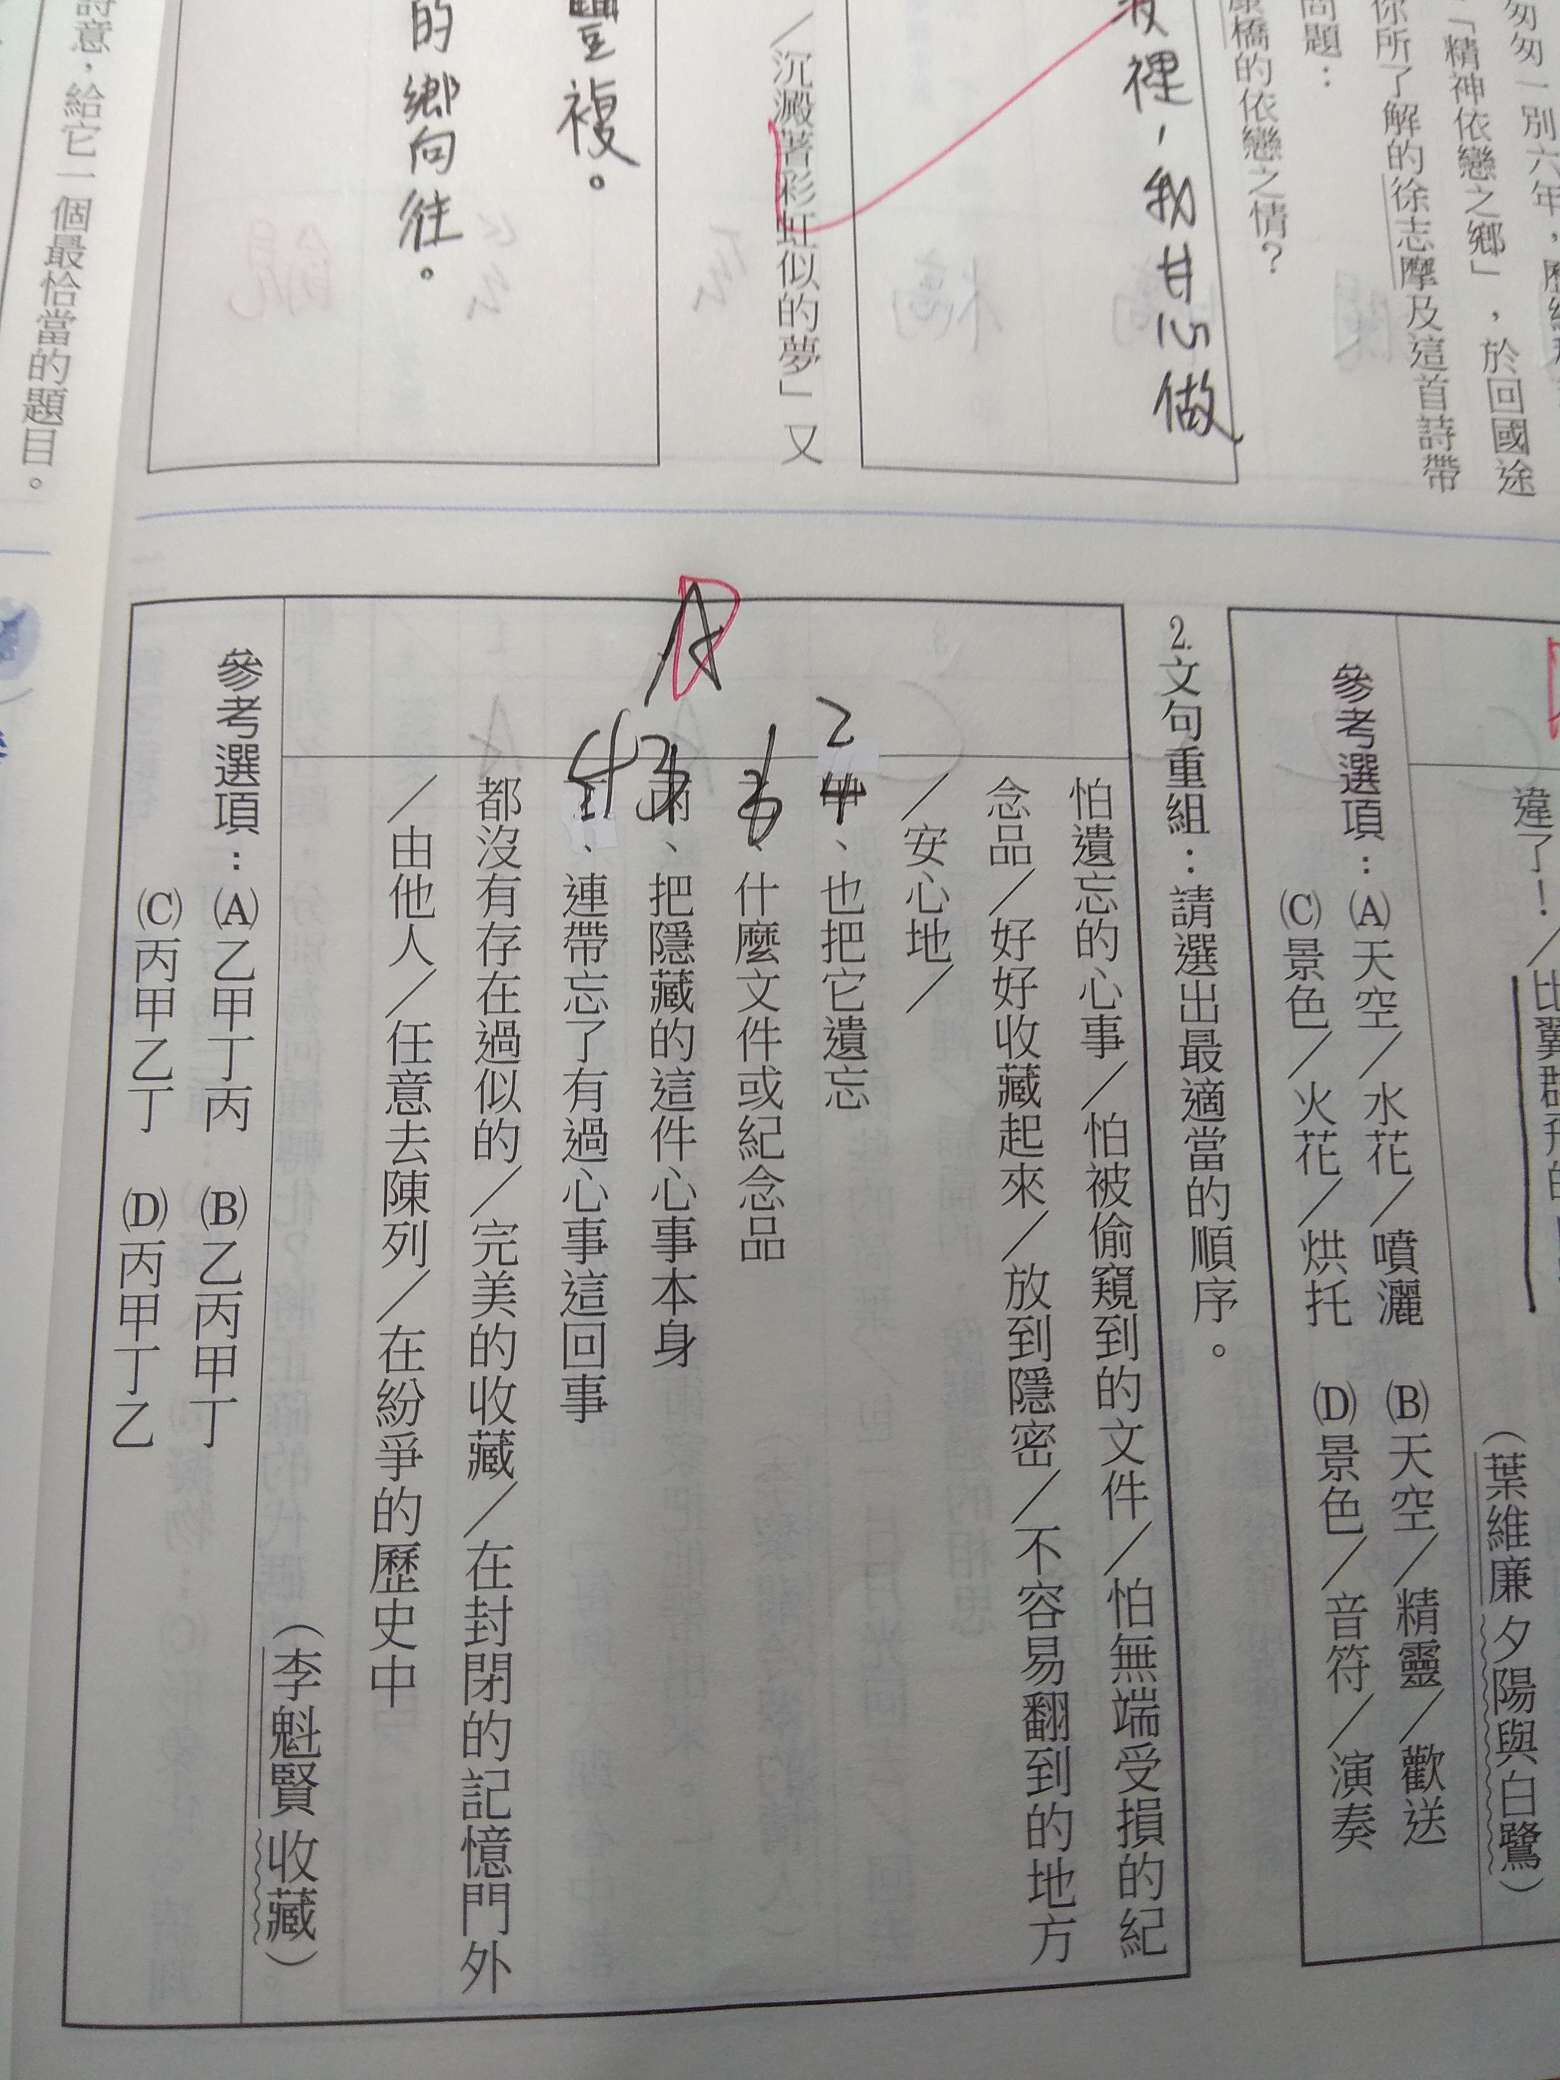 匆匆一別六年,
「精神依戀之鄉」,於回國途
你所了解的徐志摩及這首詩帶
問題:
康橋的依戀之情?
裡,我甘心做
/沉澱著彩虹似的夢」又
疊複。
的鄉向往。
詩意,給它一個最恰當的題目。
違了!/比翼群飛的
(葉維廉 夕陽與白鷺)
參考選項:(A)天空/水花/噴灑 (B)天空/精靈/歡送
(C)景色/火花/烘托 (D)景色/音符/演奏
2.文句重組:請選出最適當的順序。
怕遺忘的心事/怕被偷窺到的文件/怕無端受損的紀
念品/好好收藏起來/放到隱密/不容易翻到的地方
/安心地/
2
4
甲、也把它遺忘
、什麼文件或紀念品
3
丙、把隱藏的這件心事本身
4
、連帶忘了有過心事這回事
都沒有存在過似的/完美的收藏/在封閉的記憶門外
/由他人/任意去陳列/在紛爭的歷史中
(李魁賢 收藏)
A
D
參考選項:(A)乙甲丁丙 (B)乙丙甲丁
(C)丙甲乙丁 (D)丙甲丁乙